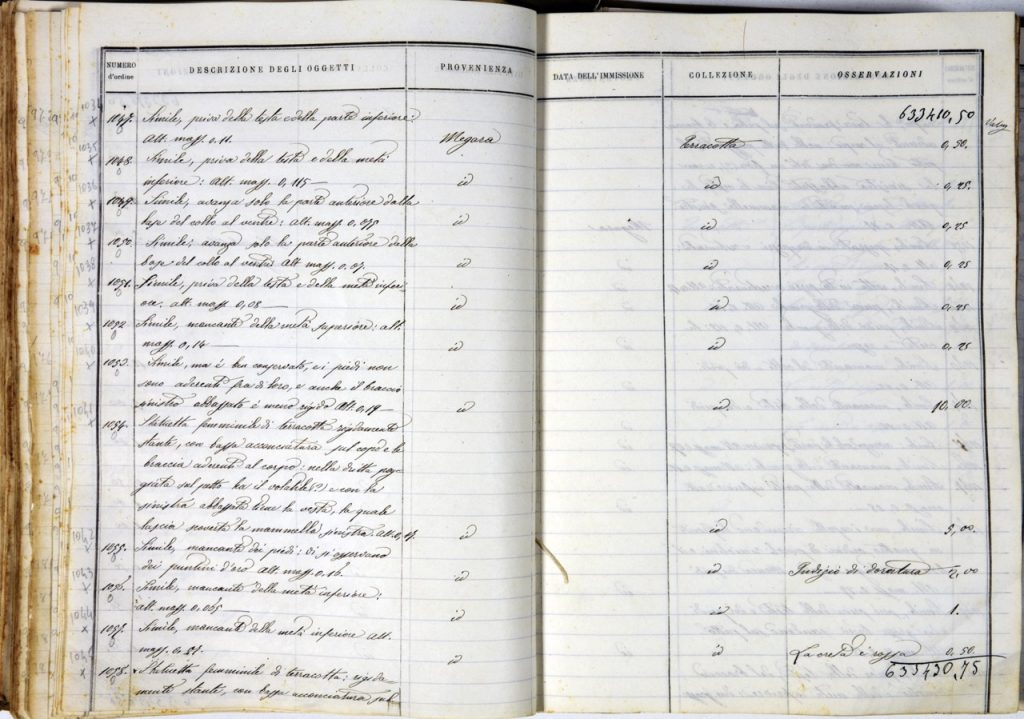 NUMERO d'ordine DESCRIZIONE DEGLI OGGETTI PROVENIENZA DATA DELL'IMMISSIONE COLLEZIONE OSSERVAZIONI
633410,50
1047. Simile, priva della testa e della parte inferiore:
alt. mass. 0,11. Megara Terracotta 0,50.
1048. Simile, priva della testa e della metà
inferiore: Alt. mass. 0,115 — id id 0,25.
1049. Simile, avanza solo la parte anteriore dalla
base del collo al ventre: alt. mass. 0,075 id id 0,25
1050. Simile; avanza solo la parte anteriore dalla
base del collo al ventre: alt mass. 0,07. id id 0,25
1051. Simile, priva della testa e della metà inferi
ore. alt. mass 0,08 — id id 0,25
1052. Simile, mancante della metà superiore: alt.
mass. 0,14 — id id 0,25
1053. Simile, ma è ben conservata, e i piedi non
sono aderenti fra di loro, e anche il braccio
sinistro abbassato è meno rigido Alt. 0,19 — id id 10,00.
1054. Statuetta femminile di terracotta rigidamente
stante, con bassa acconciatura sul capo e le
braccia aderenti al corpo: nella dritta pog
giata sul petto ha il volatile(?) e con la
sinistra abbassata tiene la veste, la quale
lascia scoverta la mammella sinistra. alt. 0, id id 5,00.
1055. Simile, mancante dei piedi: vi si osservano
dei puntini d'oro Alt. mass. 0,16. id id Indizio di doratura 2,00
1056. Simile, mancante della metà inferiore:
alt. mass. 0,065 — id id 1.
1057. Simile, mancante della metà inferiore alt.
mass. 0,51. id id La creta è rossa 0,50.
633430,75
1058. Statuetta femminile di terracotta: rigida-
mente stante, con bassa acconciatura sul